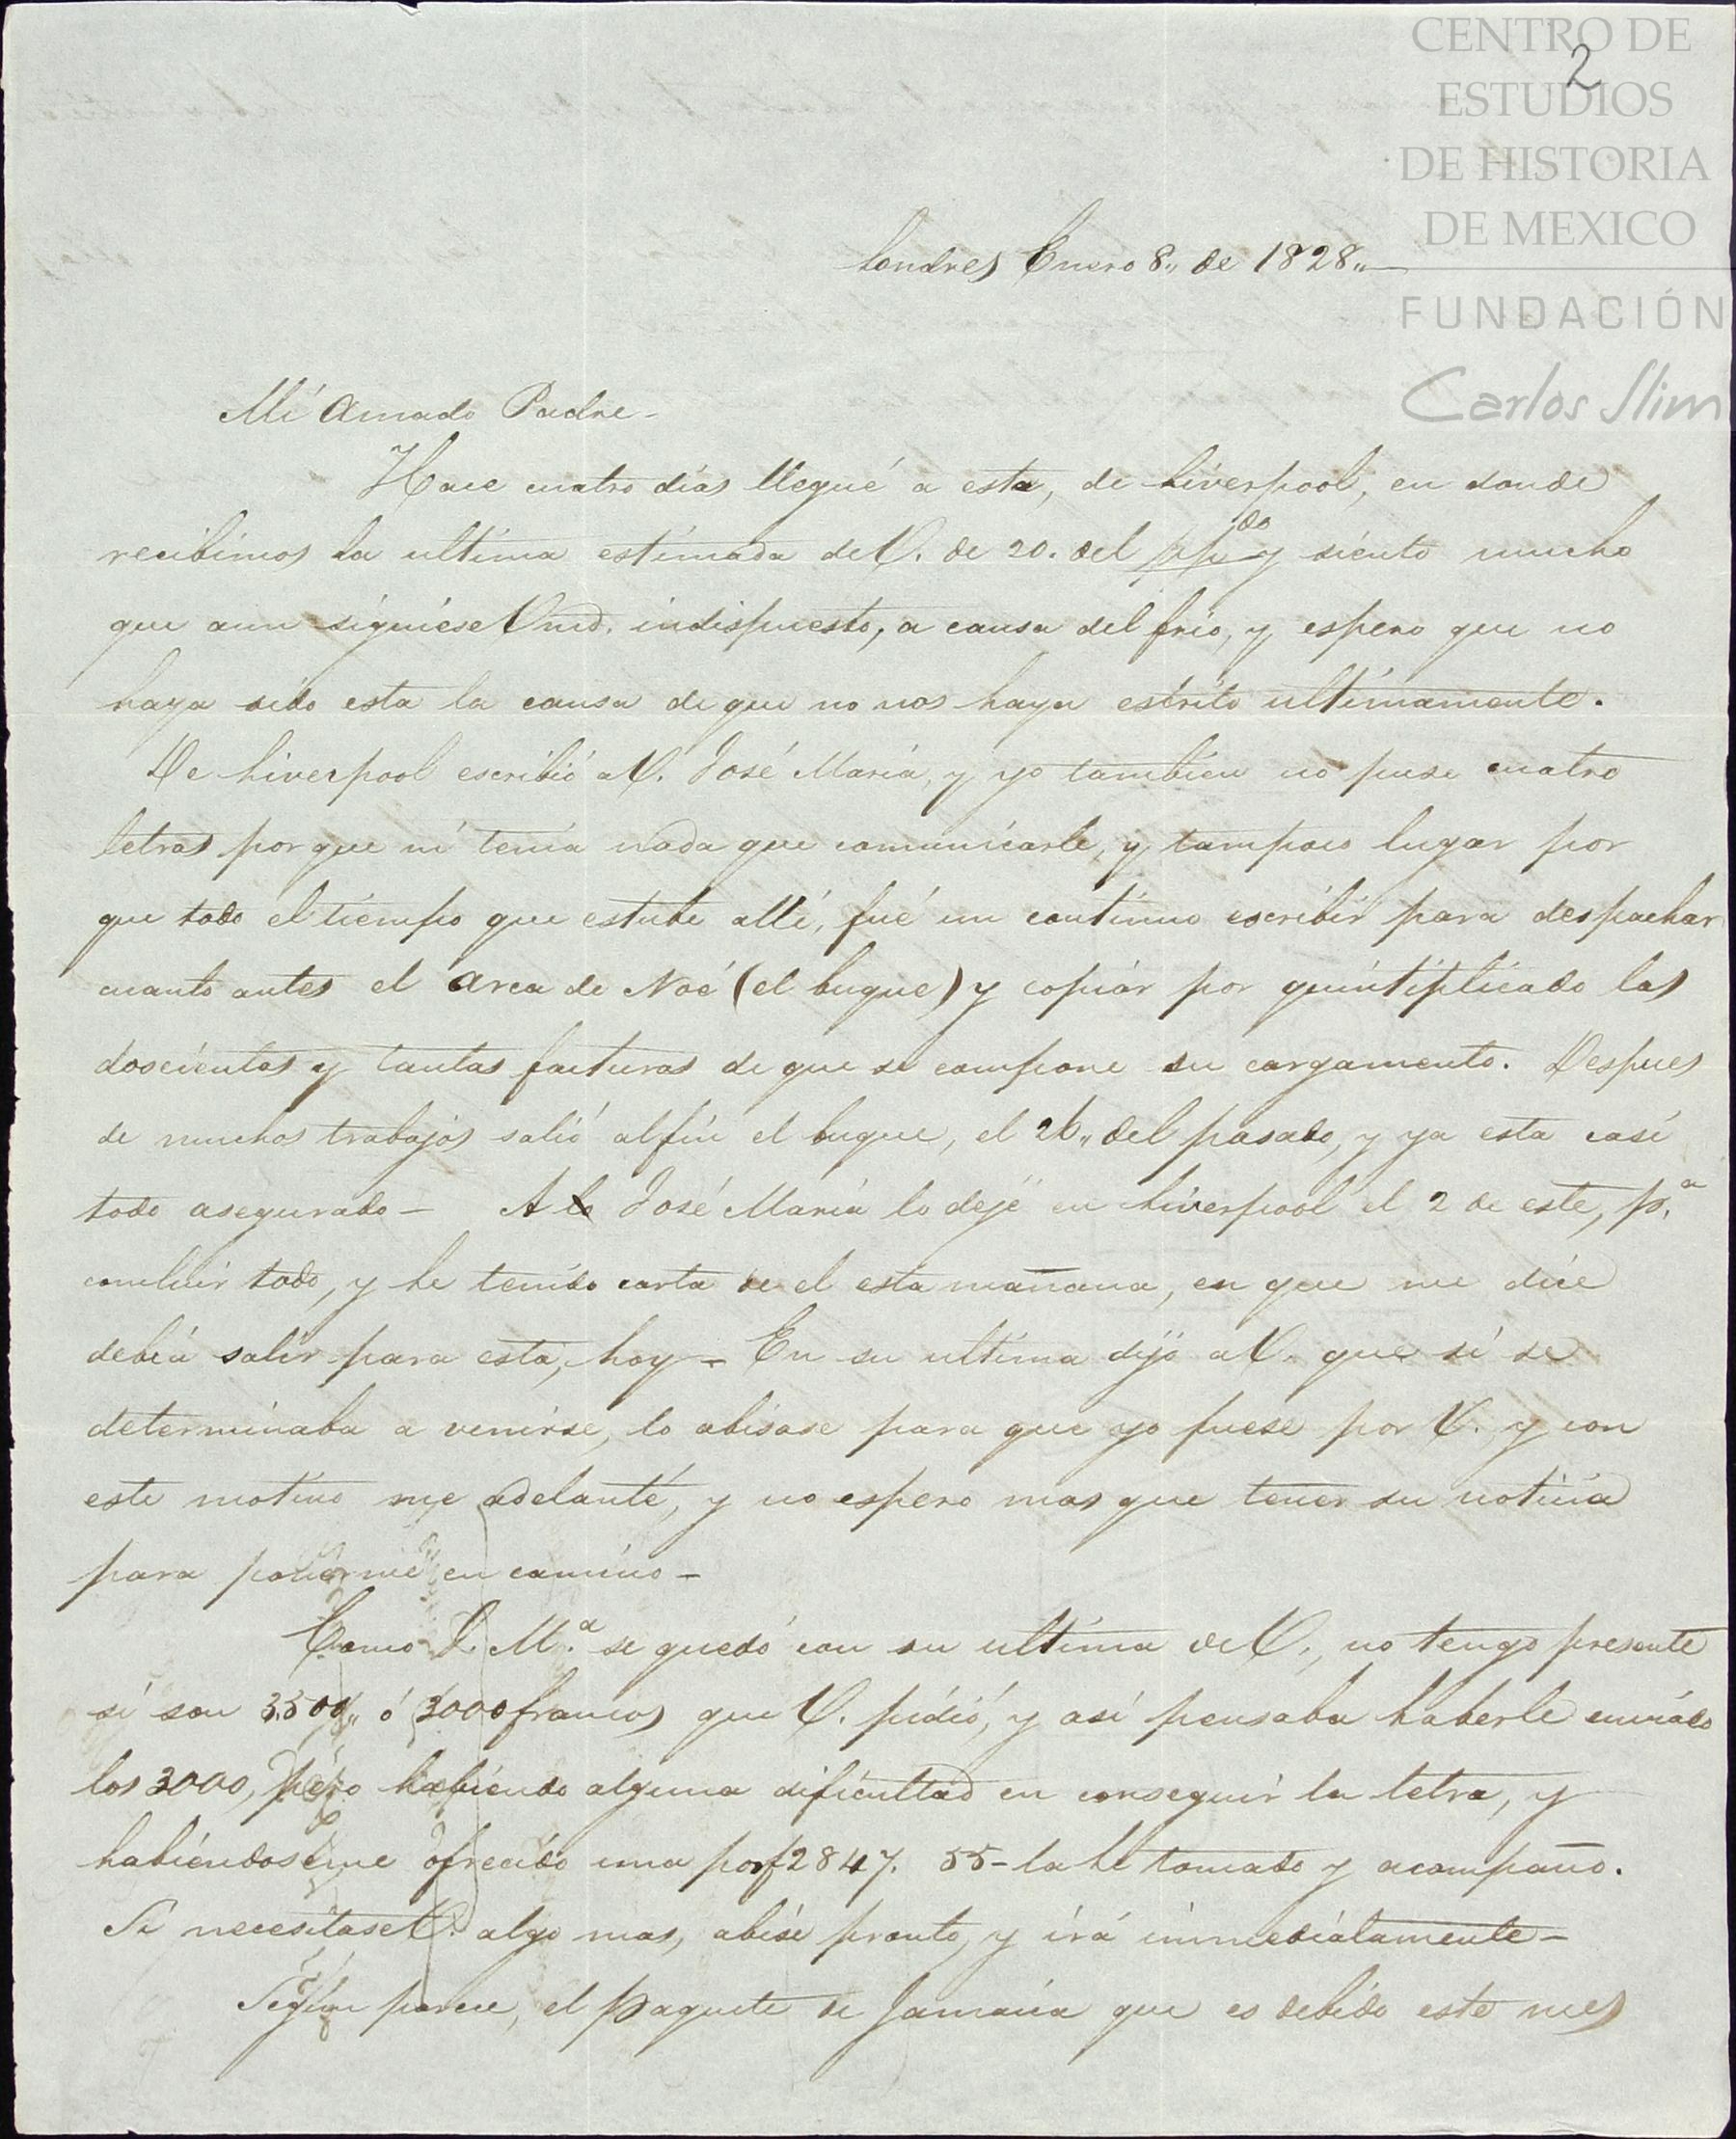 CENTRO DE
2
ESTUDIOS
DE HISTORIA
DE MEXICO
FUNDACIÓN
Carlos Slim
Londres Enero 8,, de 1828,,—
Mi Amado Padre-
Hace cuatro dias llegué a esta, de Liverpool, en donde
recibimos la ultima estimada de V. de 20. del ppdo y siento mucho
que aun siguiese Vmd. indispuesto, a causa del frio, y espero que no
haya sido esta la causa de que no nos haya escrito ultimamente.
De Liverpool escribió a V. José Maria, y yo tambien no puse cuatro
letras porque ni tenia nada que comunicarle, y tampoco lugar por
que todo el tiempo que estube allí, fué un continuo escribir para despachar
cuanto antes el Arca de Noé (el buque) y copiar por quintiplicado las
doscientas y tantas facturas de que se compone su cargamento. Despues
de muchos trabajos salió al fin el buque, el 26,, del pasado, y ya esta casi
todo asegurado- A José Maria lo dejé en Liverpool el 2 de este, p.a
concluir todo, y he tenido carta de el esta mañana, en que me dice
debia salir para esta, hoy- En su ultima dijo a V. que si se
determinaba a venirse, lo abisase para que yo fuese por V. y con
este motivo me adelanté, y no espero mas que tener su noticia
para ponerme en camino-
Como J. M.a se quedó con su ultima de V., no tengo presente
si son 3.500,, ó 3000 francos que V. pidió, y asi pensaba haberle enviado
los 3000, pero habiendo alguna dificultad en conseguir la letra, y
habiendoseme ofrecido una por f2847. 55- la he tomado y acompaño.
Si necesitase V. algo mas, abise pronto, y irá inmediatamente-
Segun parece, el paquete de Jamaica que es debido este mes